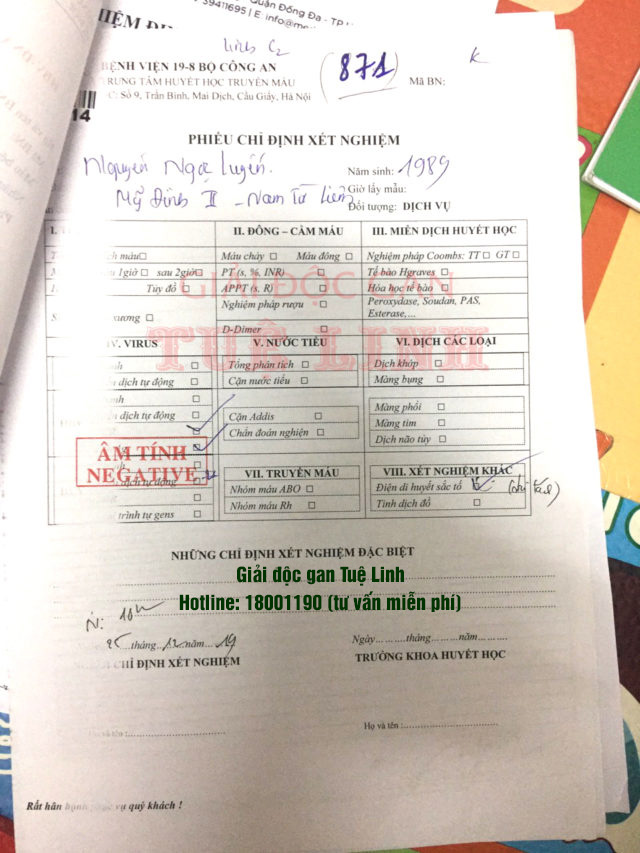 39411695 | E: info@me
Quận Đống Đa - TP
IỆM
871
K
BỆNH VIỆN 19-8 BỘ CÔNG AN
TRUNG TÂM HUYẾT HỌC TRUYỀN MÁU
Mã BN:
C: Số 9, Trần Bình, Mai Dịch, Cầu Giấy, Hà Nội
14
PHIẾU CHỈ ĐỊNH XÉT NGHIỆM
Nguyễn Ngọc Luyến.
Năm sinh: 1989
Mỹ Đình II - Nam Từ Liêm
Giờ lấy mẫu:
Đối tượng: DỊCH VỤ
II. ĐÔNG – CẦM MÁU
III. MIỄN DỊCH HUYẾT HỌC
máu
Máu chảy Máu đông
Nghiệm pháp Coombs: TT GT
1giờ sau 2giờ
PT (s, %, INR)
Tế bào Hgraves
Tủy đồ
APPT (s, R)
Hóa học tế bào
Nghiệm pháp rượu
Peroxydase, Soudan, PAS,
Esterase,...
xương
D-Dimer
GIẢI ĐỘC GAN
TUỆ LINH
IV. VIRUS
V. NƯỚC TIỂU
VI. DỊCH CÁC LOẠI
nh
Tổng phân tích
Dịch khớp
dịch tự động
Cặn nước tiểu
Màng bụng
nh
Màng phổi
dịch tự động
Cặn Addis
Màng tim
Chẩn đoán nghiện
Dịch não tủy
ÂM TÍNH
NEGATIVE
VII. TRUYỀN MÁU
VIII. XÉT NGHIỆM KHÁC
dịch tự động
Nhóm máu ABO
Điện di huyết sắc tố
Nhóm máu Rh
Tinh dịch đồ
trình tự gens
NHỮNG CHỈ ĐỊNH XÉT NGHIỆM ĐẶC BIỆT
Giải độc gan Tuệ Linh
Hotline: 18001190 (tư vấn miễn phí)
25 tháng 12 năm 19
Ngày.........tháng .........năm..........
CHỈ ĐỊNH XÉT NGHIỆM
TRƯỞNG KHOA HUYẾT HỌC
Họ và tên :
Họ và tên :
Rất hân hạnh phục vụ quý khách !